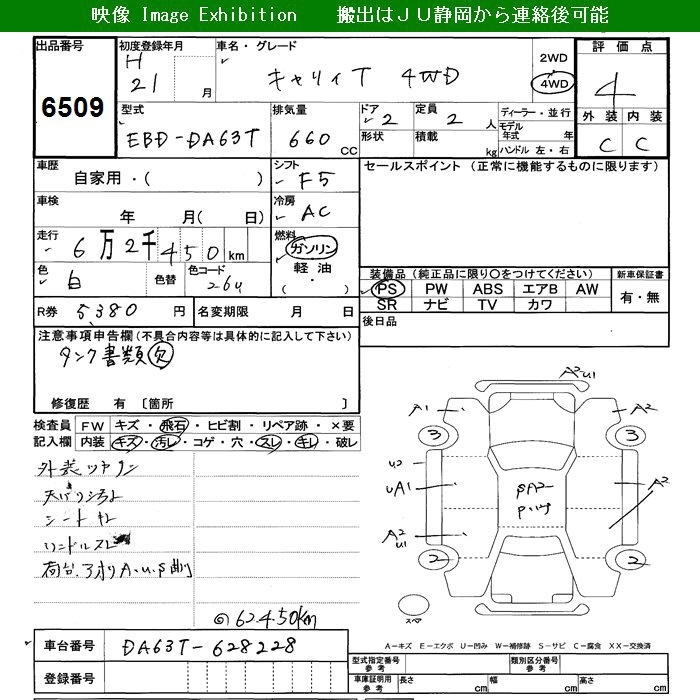 映像 Image Exhibition 搬出はＪＵ静岡から連絡後可能
出品番号
6509
初度登録年月
H 21 月
車名・グレード
キャリィT 4WD
2WD
4WD
評価点
4
外装 内装
C C
型式
EBD-DA63T
排気量
660 CC
ドア 2
形状
定員 2 人
積載 kg
ディーラー・並行
モデル年式 年
ハンドル 左・右
車歴
自家用・( )
シフト
F5
セールスポイント (正常に機能するものに限ります)
車検
年 月( 日)
冷房
AC
走行
6万2千450km
燃料
ガソリン
軽油
色
白
色替
色コード
26U
装備品 (純正品に限り〇をつけてください)
PS PW ABS エアB AW
SR ナビ TV カワ
新車保証書
有・無
R券 5,380 円
名変期限 月 日
後日品
注意事項申告欄 (不具合内容等は具体的に記入して下さい)
タンク書類欠
修復歴 有 〔箇所 〕
検査員記入欄
FW キズ・飛石・ヒビ割・リペア跡・×要
内装 キズ・汚レ・コゲ・穴・スレ・キレ・破レ
シートキレ
ハンドルスレ
荷台
A・U・S曲
62450km
A2 U1
A1
A2
3
3
U2
UA1
A2
A2
U1
2
2
スペア
A－キズ E－エクボ U－凹み W－補修跡 S－サビ C－腐食 XX－交換済
車台番号
DA63T-628228
登録番号
型式指定番号 参考
類別区分番号 参考
車庫証明用 参考
長さ cm
幅 cm
高さ cm